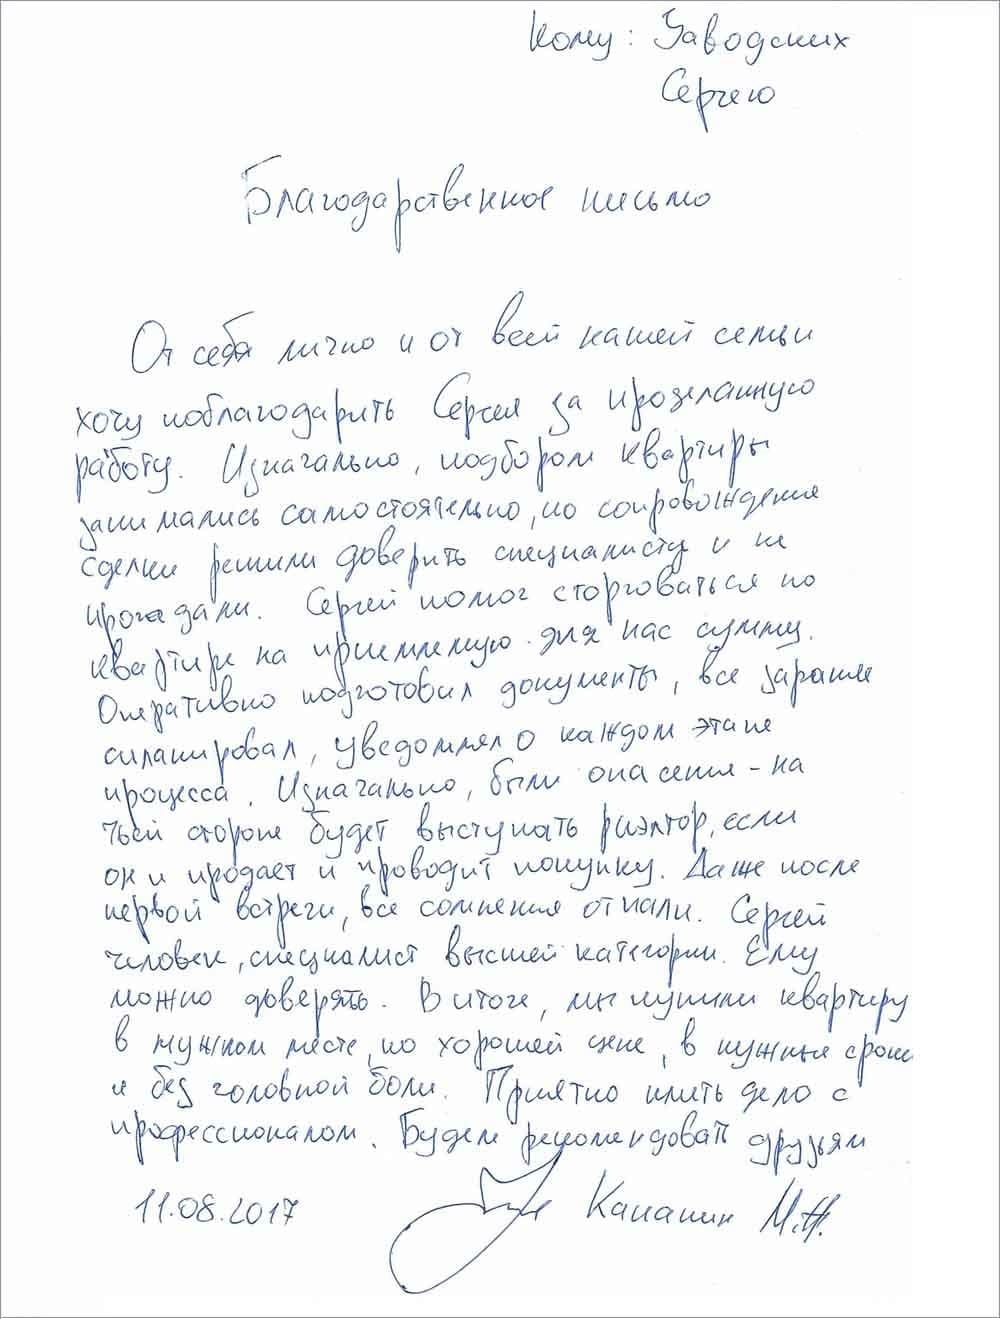 Кому: Заводских
Сергею
Благодарственное письмо
От себя лично и от всей нашей семьи
хочу поблагодарить Сергея за проделанную
работу. Изначально, подбором квартиры
занимались самостоятельно, но сопровождение
сделки решили доверить специалисту и не
прогадали. Сергей помог сторговаться по
квартире на приемлемую для нас сумму.
Оперативно подготовил документы, все заранее
спланировал, уведомлял о каждом этапе
процесса. Изначально, были опасения - на
чьей стороне будет выступать риэлтор, если
он и продает и проводит покупку. Даже после
первой встречи, все сомнения отпали. Сергей
человек, специалист высшей категории. Ему
можно доверять. В итоге, мы купили квартиру
в нужном месте, по хорошей цене, в нужные сроки
и без головной боли. Приятно иметь дело с
профессионалом. Будем рекомендовать друзьям
11.08.2017 М.Н.